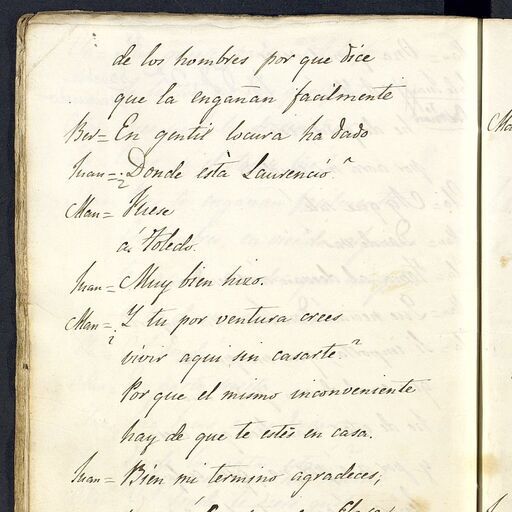 de los hombres por que dice
que la engañan facilmente
Ber= En gentil locura ha dado
Juan=¿Donde està Laurenció?
Man= Fuese
á Toledo.
Juan= Muy bien hizo.
Man=¿Y tu por ventura crees
vivir aqui sin casarte?
Por que el mismo inconveniente
hay de que te estés en casa.
Juan= Bien mi termino agradeces;